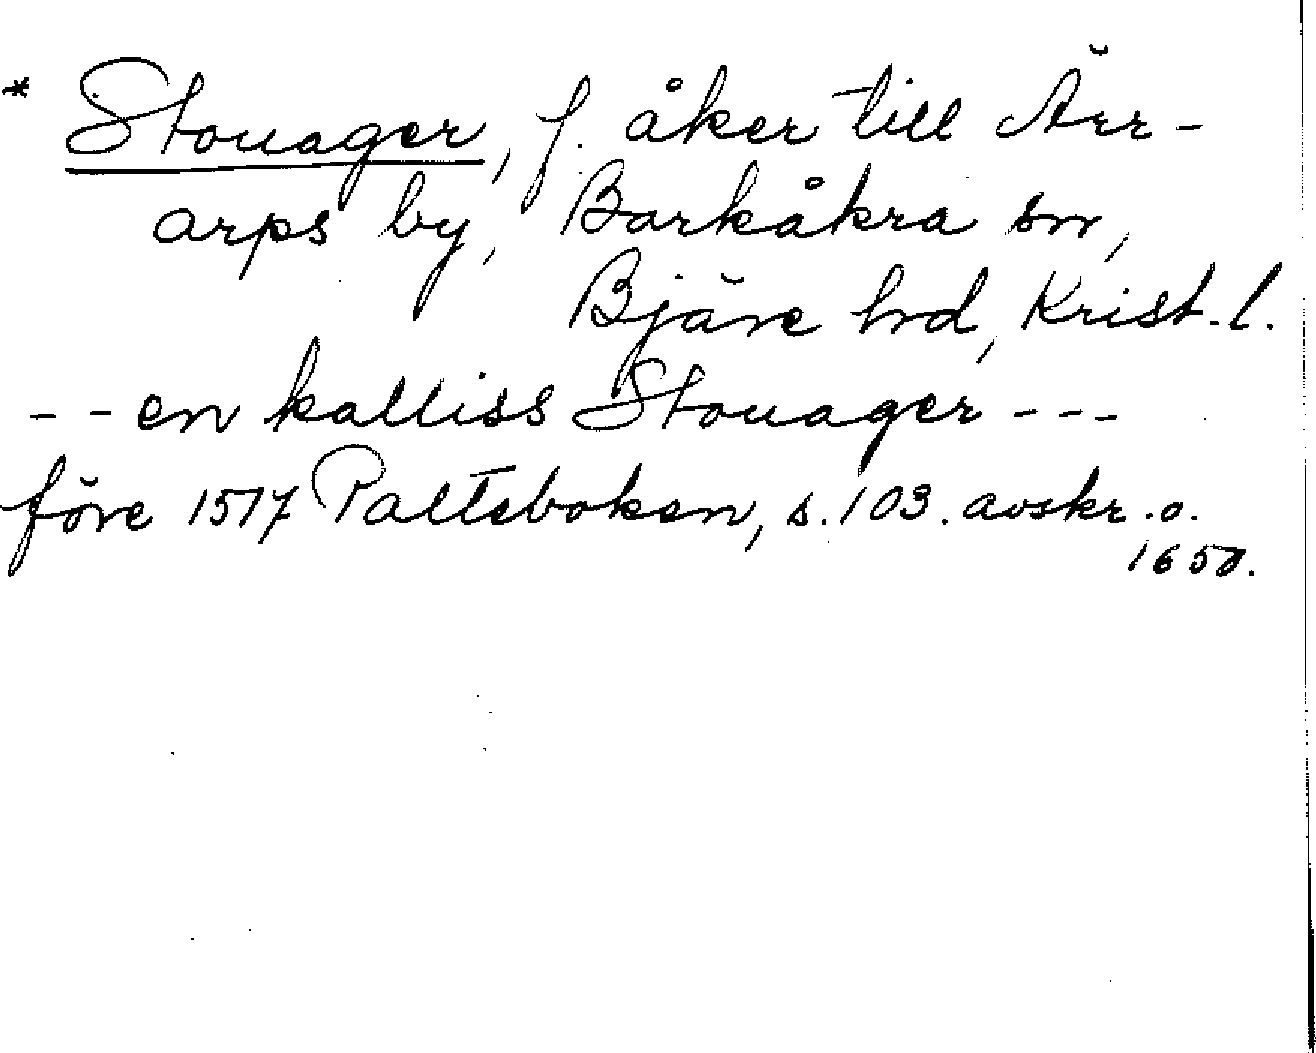 * Stouager, f. åker till Ärr-
arps by, Barkåkra sn,
Bjäre hd, Krist. l.
-- en kalliss Stouager ---
före 1517 Palteboken, s. 103. avskr. o.
1650.